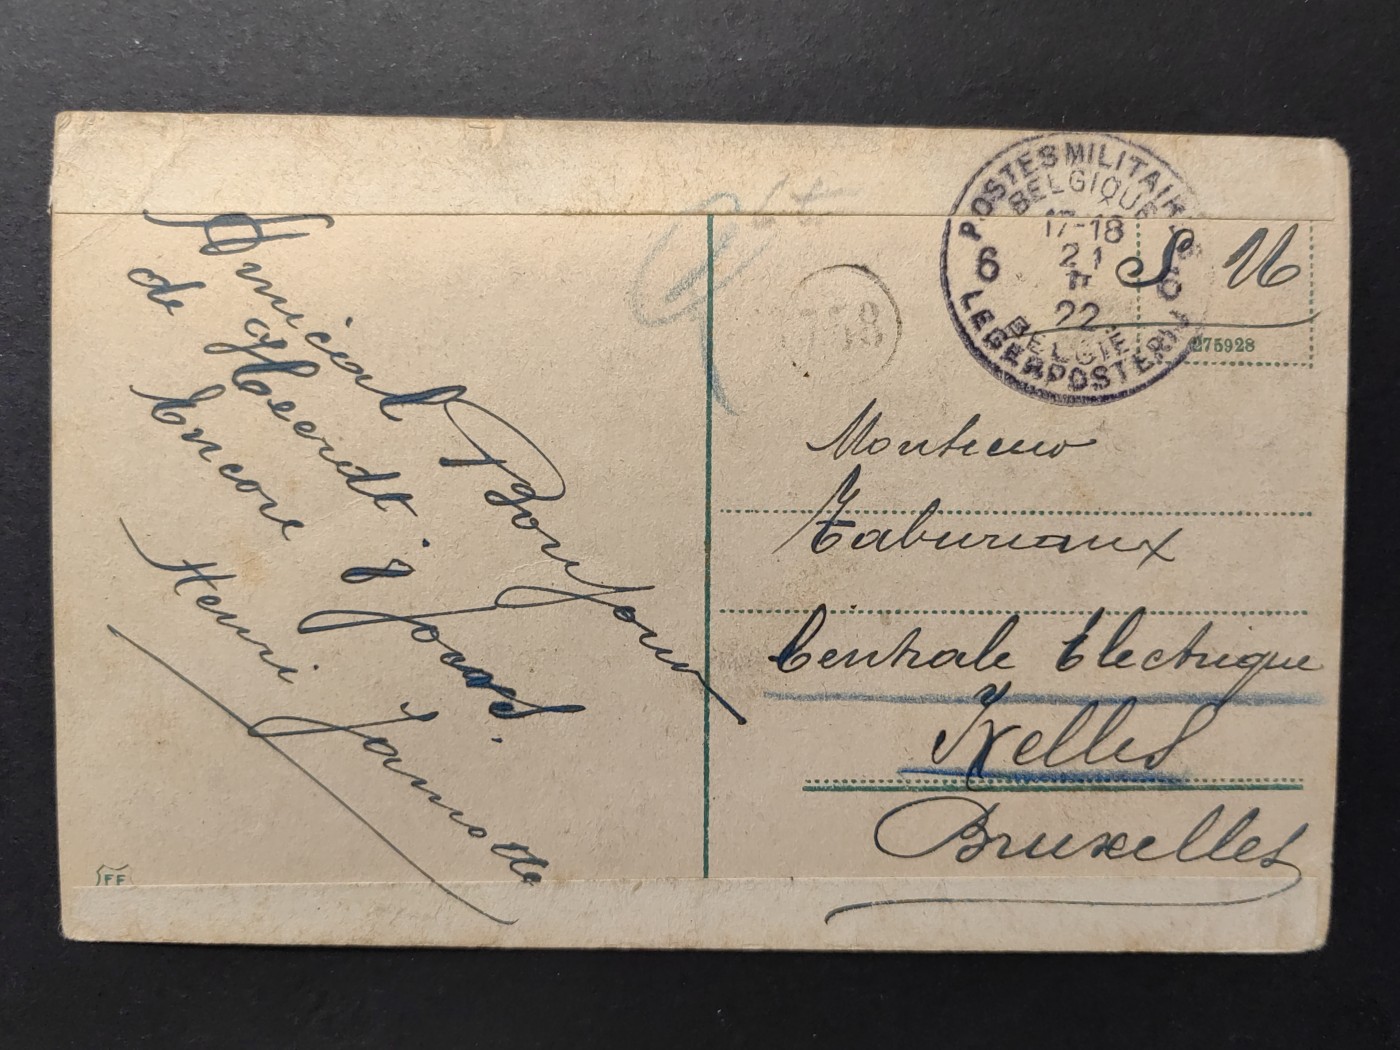 Amical Bonjour
de
Encore 8 Jours.
Henri Jamotte
FF
758
POSTES MILITAIRES
BELGIQUE
17-18
21
II
22
BELGIE
LEGERPOSTERIJ
6 6
S M
275928
Monsieur
Taburiaux
Centrale Electrique
Ixelles
Bruxelles